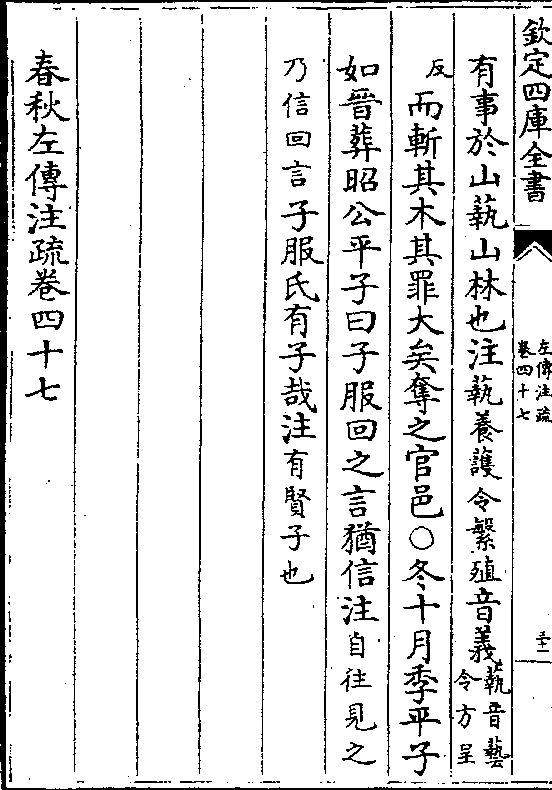 欽定四庫全書
左傳注疏
卷四十七
三十二
有事於山蓺山林也注蓺養護令繁殖音義蓺音藝
令方呈
反而斬其木其罪大矣奪之官邑○冬十月季平子
如晉葬昭公平子曰子服回之言猶信注自往見之
乃信回言子服氏有子哉注有賢子也
春秋左傳注疏卷四十七